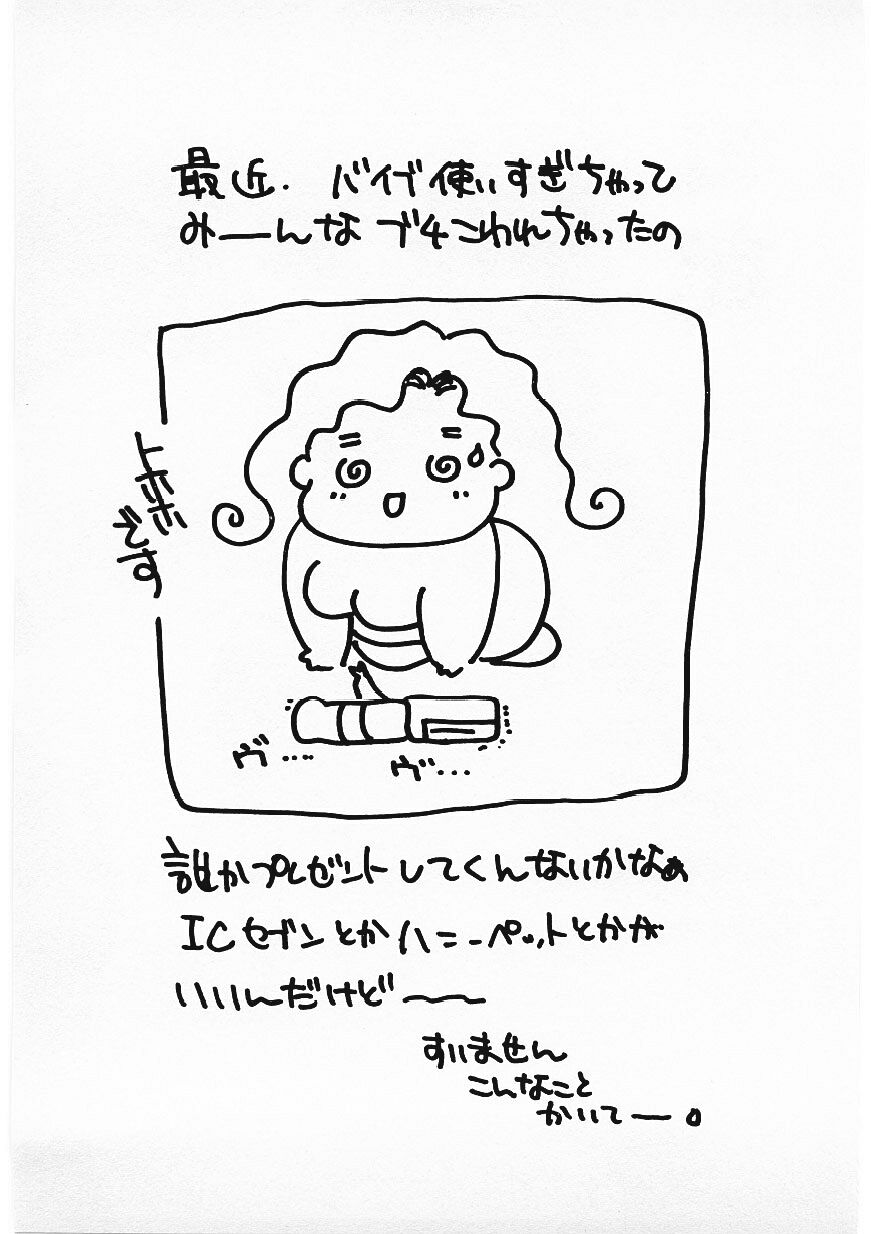 最近. バイブ使いすぎちゃって
みーんなブチこわれちゃったの
トホホです
ヴ…. ヴ…
誰かプレゼントしてくんないかなぁ
ICセブンとかハニーペットとかが
いいんだけど〜〜
すいません
こんなこと
かいてー。